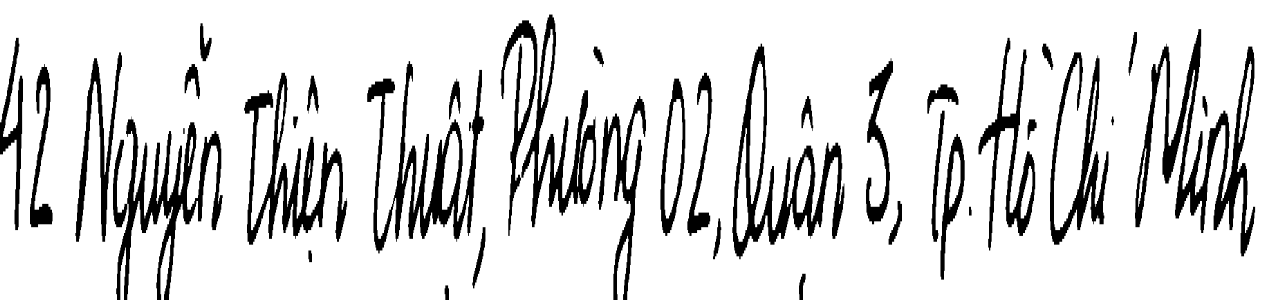 42 Nguyễn Thiện Thuật, Phường 02, Quận 3, Tp. Hồ Chí Minh